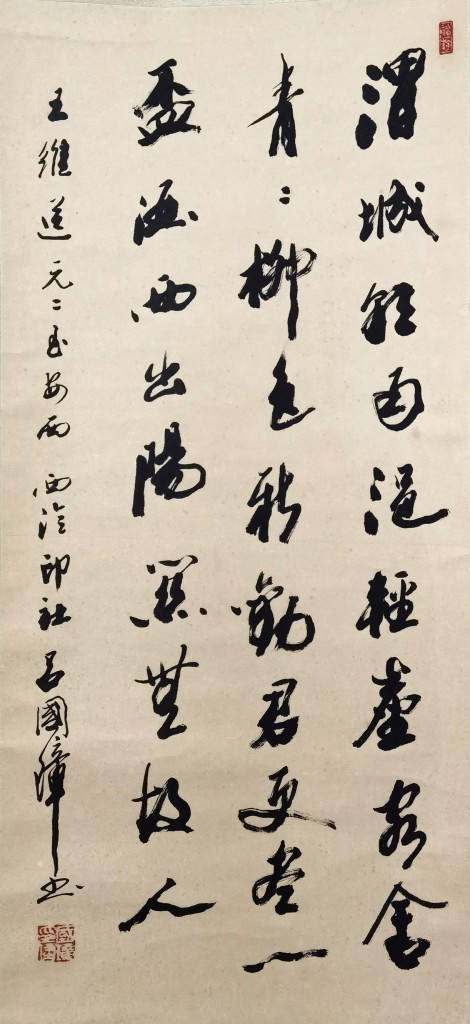 渭城朝雨浥輕塵客舍
青〻柳色新勸君更盡一
盃酒西出陽關無故人
王維送元二至安西 西泠印社呂國璋書